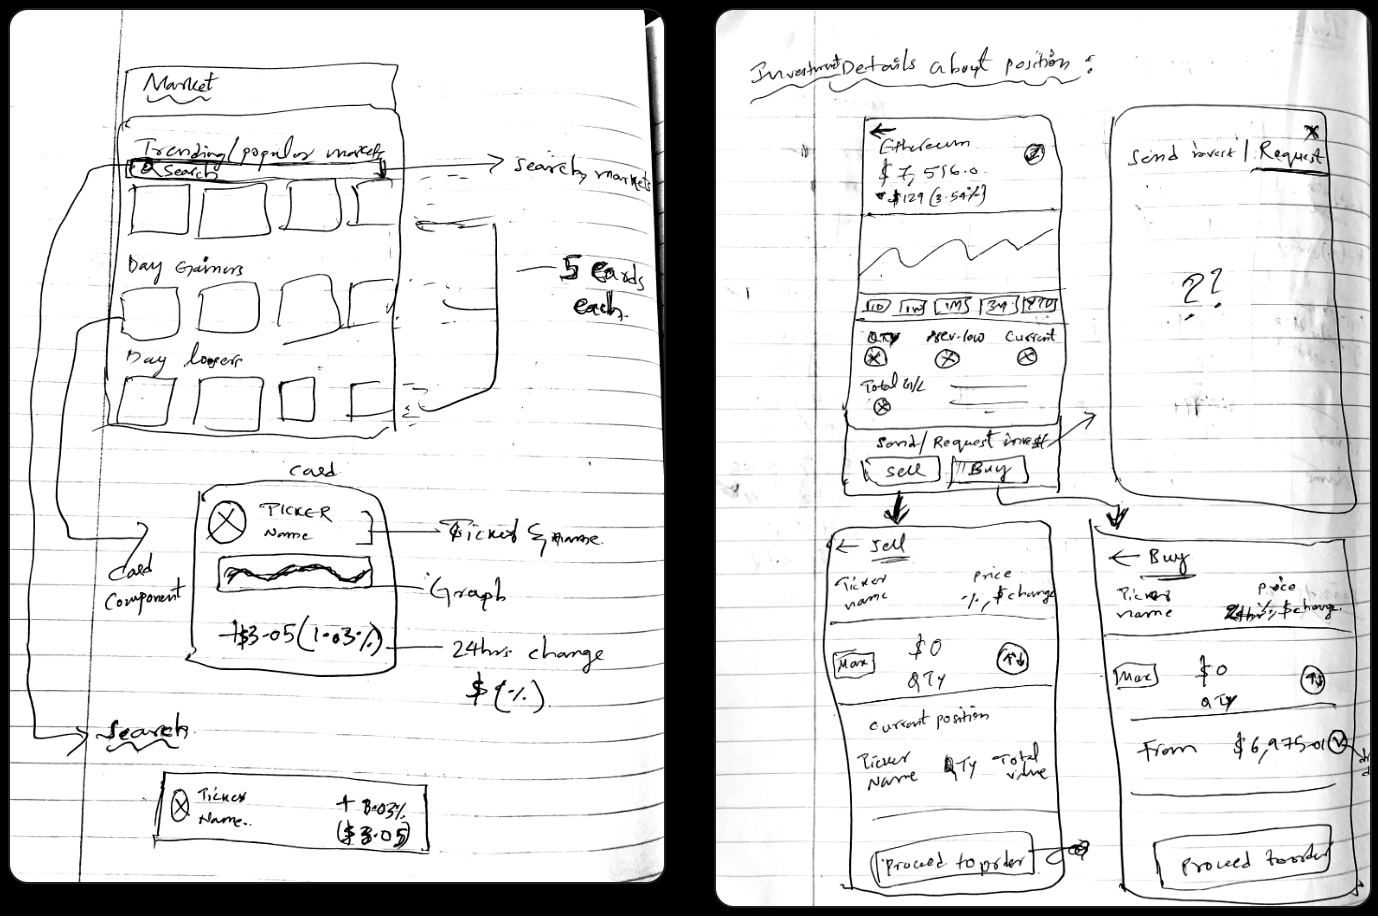 Market
Trending/popular markets
Search
search, markets
Day Gainers
5 cards
each.
Day losers
Card
TICKER
Name
Ticker & name.
Card
Component
Graph
+$3.05(1.03%)
24hrs. change
$ (%).
Search
Ticker
Name.
+ 3.03%
($3.05)
Investment Details about position :
Ethereum
$7,556.0
$129 (3.54%)
1D 1W 1M 3M YTD
QTY Prev.low Current
Total G/L
Send/Request invest
Sell Buy
Send invest / Request
??
Sell
Ticker
name
Price
%, $ change
Max
$0
QTY
Current position
Ticker
Name
QTY
Total
value
Proceed to order
Buy
Ticker
name
price
24hr %, $ change.
Max
$0
QTY
From $6,975.01
Proceed to order